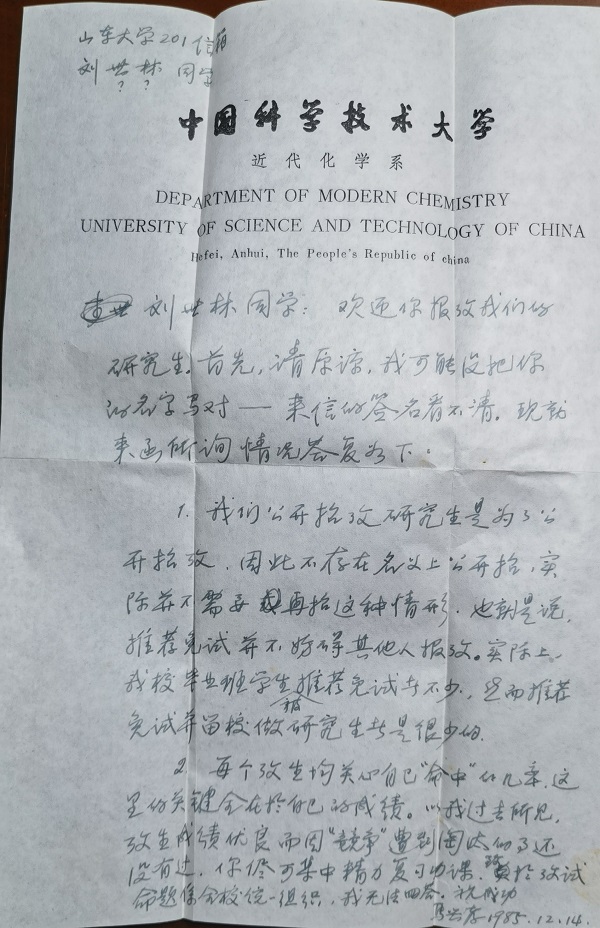 山东大学201信箱
刘世林同学
? ?
中国科学技术大学
近代化学系
DEPARTMENT OF MODERN CHEMISTRY
UNIVERSITY OF SCIENCE AND TECHNOLOGY OF CHINA
Hefei, Anhui, The People's Republic of china
刘世林同学：欢迎你报考我们的
研究生。首先，请原谅，我可能没把你
的名字写对——来信的签名看不清。现就
来函所询情况答复如下：
1. 我们公开招考研究生是为了公
开招考，因此不存在名义上公开招，实
际并不需要再招这种情形，也就是说，
推荐免试并不妨碍其他人报考。实际上，
我校毕业班学生被推荐免试者不少，然而推荐
免试并留校做研究生者是很少的。
2. 每个考生均关心自己“命中”的几率，这
里的关键全在于自己的成绩。以我过去所见，
考生成绩优良而因“竞争”遭到淘汰的事还
没有过，你尽可集中精力复习功课，至于考试
命题系全校统一组织，我无法回答。祝成功
1985.12.14.